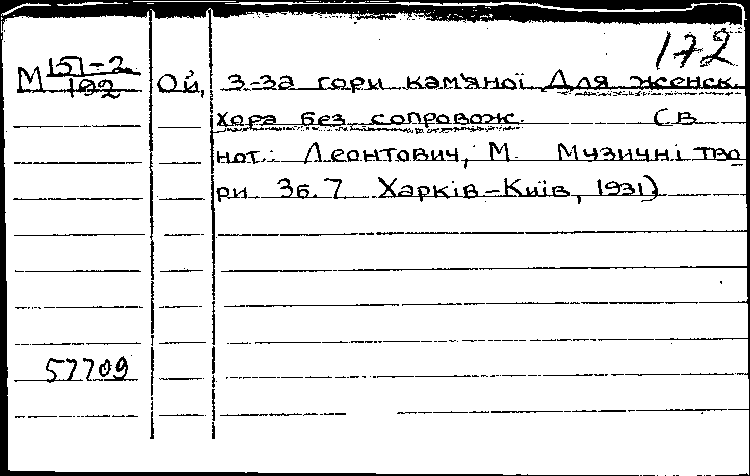 172
М 151-2 Ой, з-за гори кам'яної Для женск.
192
хора без сопровож. (в
нот.: Леонтович, М. Музичні тво
ри. Зб. 7 Харків-Київ, 1931)
57709